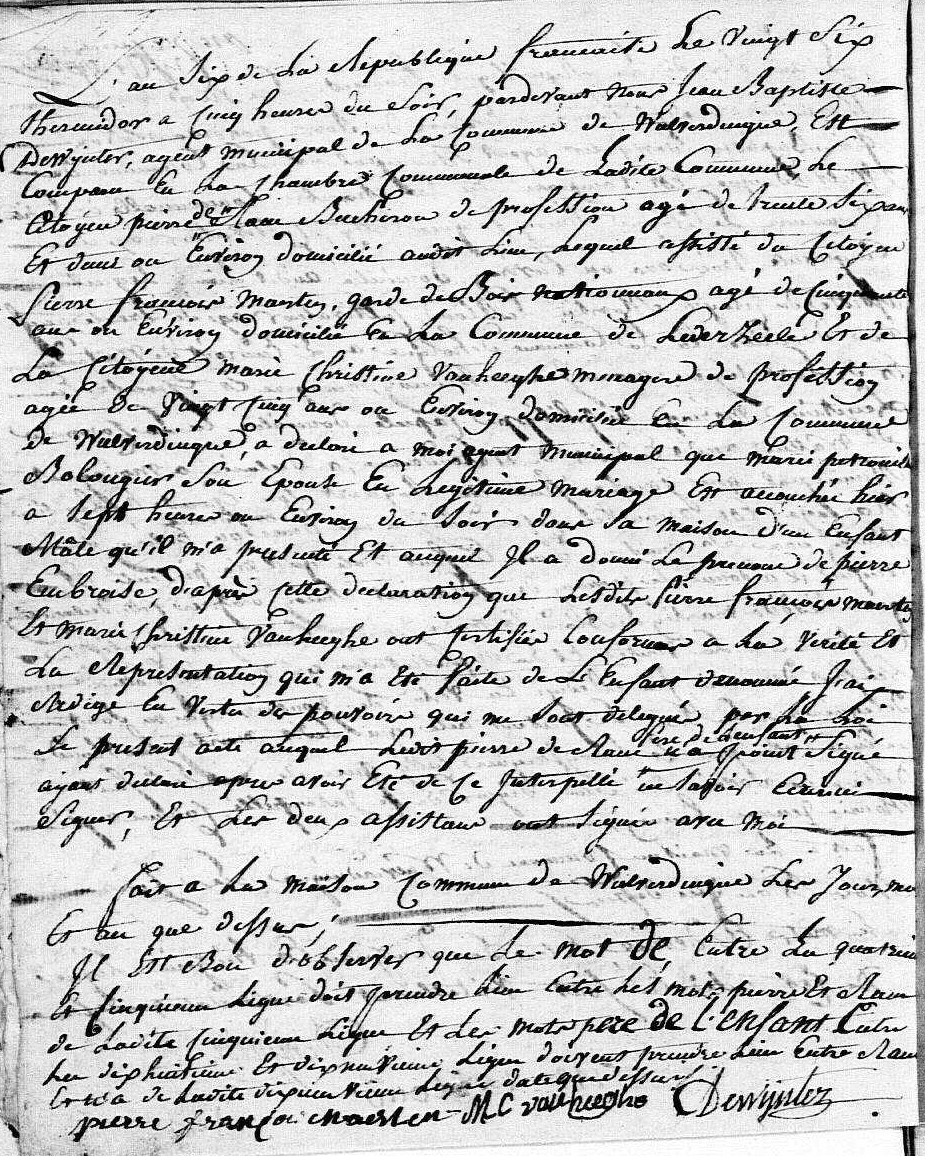 L'an Six de La Republique francaise Le Vingt Six
thermidor a Cinq heures du Soir, pardevant nous Jean Baptiste
Dewynter, agent municipal de La Commune de Wulverdingue, Est
Comparu En La Chambre Communale de Ladite Commune, Le
Citoyen pierre de Raeu Bucheron de profession agé de trente Six ans
Et demi ou Environ domicilié audit Lieu, Lequel assisté du Citoyen
Pierre françois Maerten, garde de Bois nationnaux agé de Cinquante
ans ou Environ domicilié En La Commune de Lederzeele Et de
La Citoyene marie Christine Vanheeghe menagere de profession
agée de Vingt Cinq ans ou Environ domiciliée En La Commune
de Wulverdingue, a declaré a moi agent municipal que marie petronille
Epouse En Legitime mariage Est accouchée hier
a Sept heures ou Environ du Soir dans Sa maison d'un Enfant
Mâle qu'il m'a presenté Et auquel Il a donné Le prenom de pierre
Embroise, d'apres Cette declaration que Lesdits Pierre françois maerten
Et marie Christine Vanheeghe ont Certifiée Conforme a La Verité Et
La Representation qui m'a Eté faite de L'Enfant denommé J'ai
Redigé En Vertu des pouvoirs qui me Sont delegués par La Loi
Le present acte auquel Ledit pierre de Raeu pere de L'enfant n'a point Signé
ayant declaré apres avoir Eté de Ce Interpellé ne Savoir Ecrire ni
Signer, Et Les deux assistans ont Signés avec moi
fait a La maison Commune de Wulverdingue Les Jour, mois
Et an que dessus,
Il Est Bon d'observer que Le mot de, Entre La quatrieme
Et Cinquieme Ligne doit prendre Lieu Entre Les mots pierre Et Raeu
de Ladite Cinquieme Ligne Et Les mots pere de L'enfant Entre
La dixhuitieme Et dixneuvieme Ligne doivent prendre Lieu Entre Raeu
Et n'a de Ladite dixneuvieme Ligne date que dessus
pierre françoi maerten M C vanheeghe Dewynter